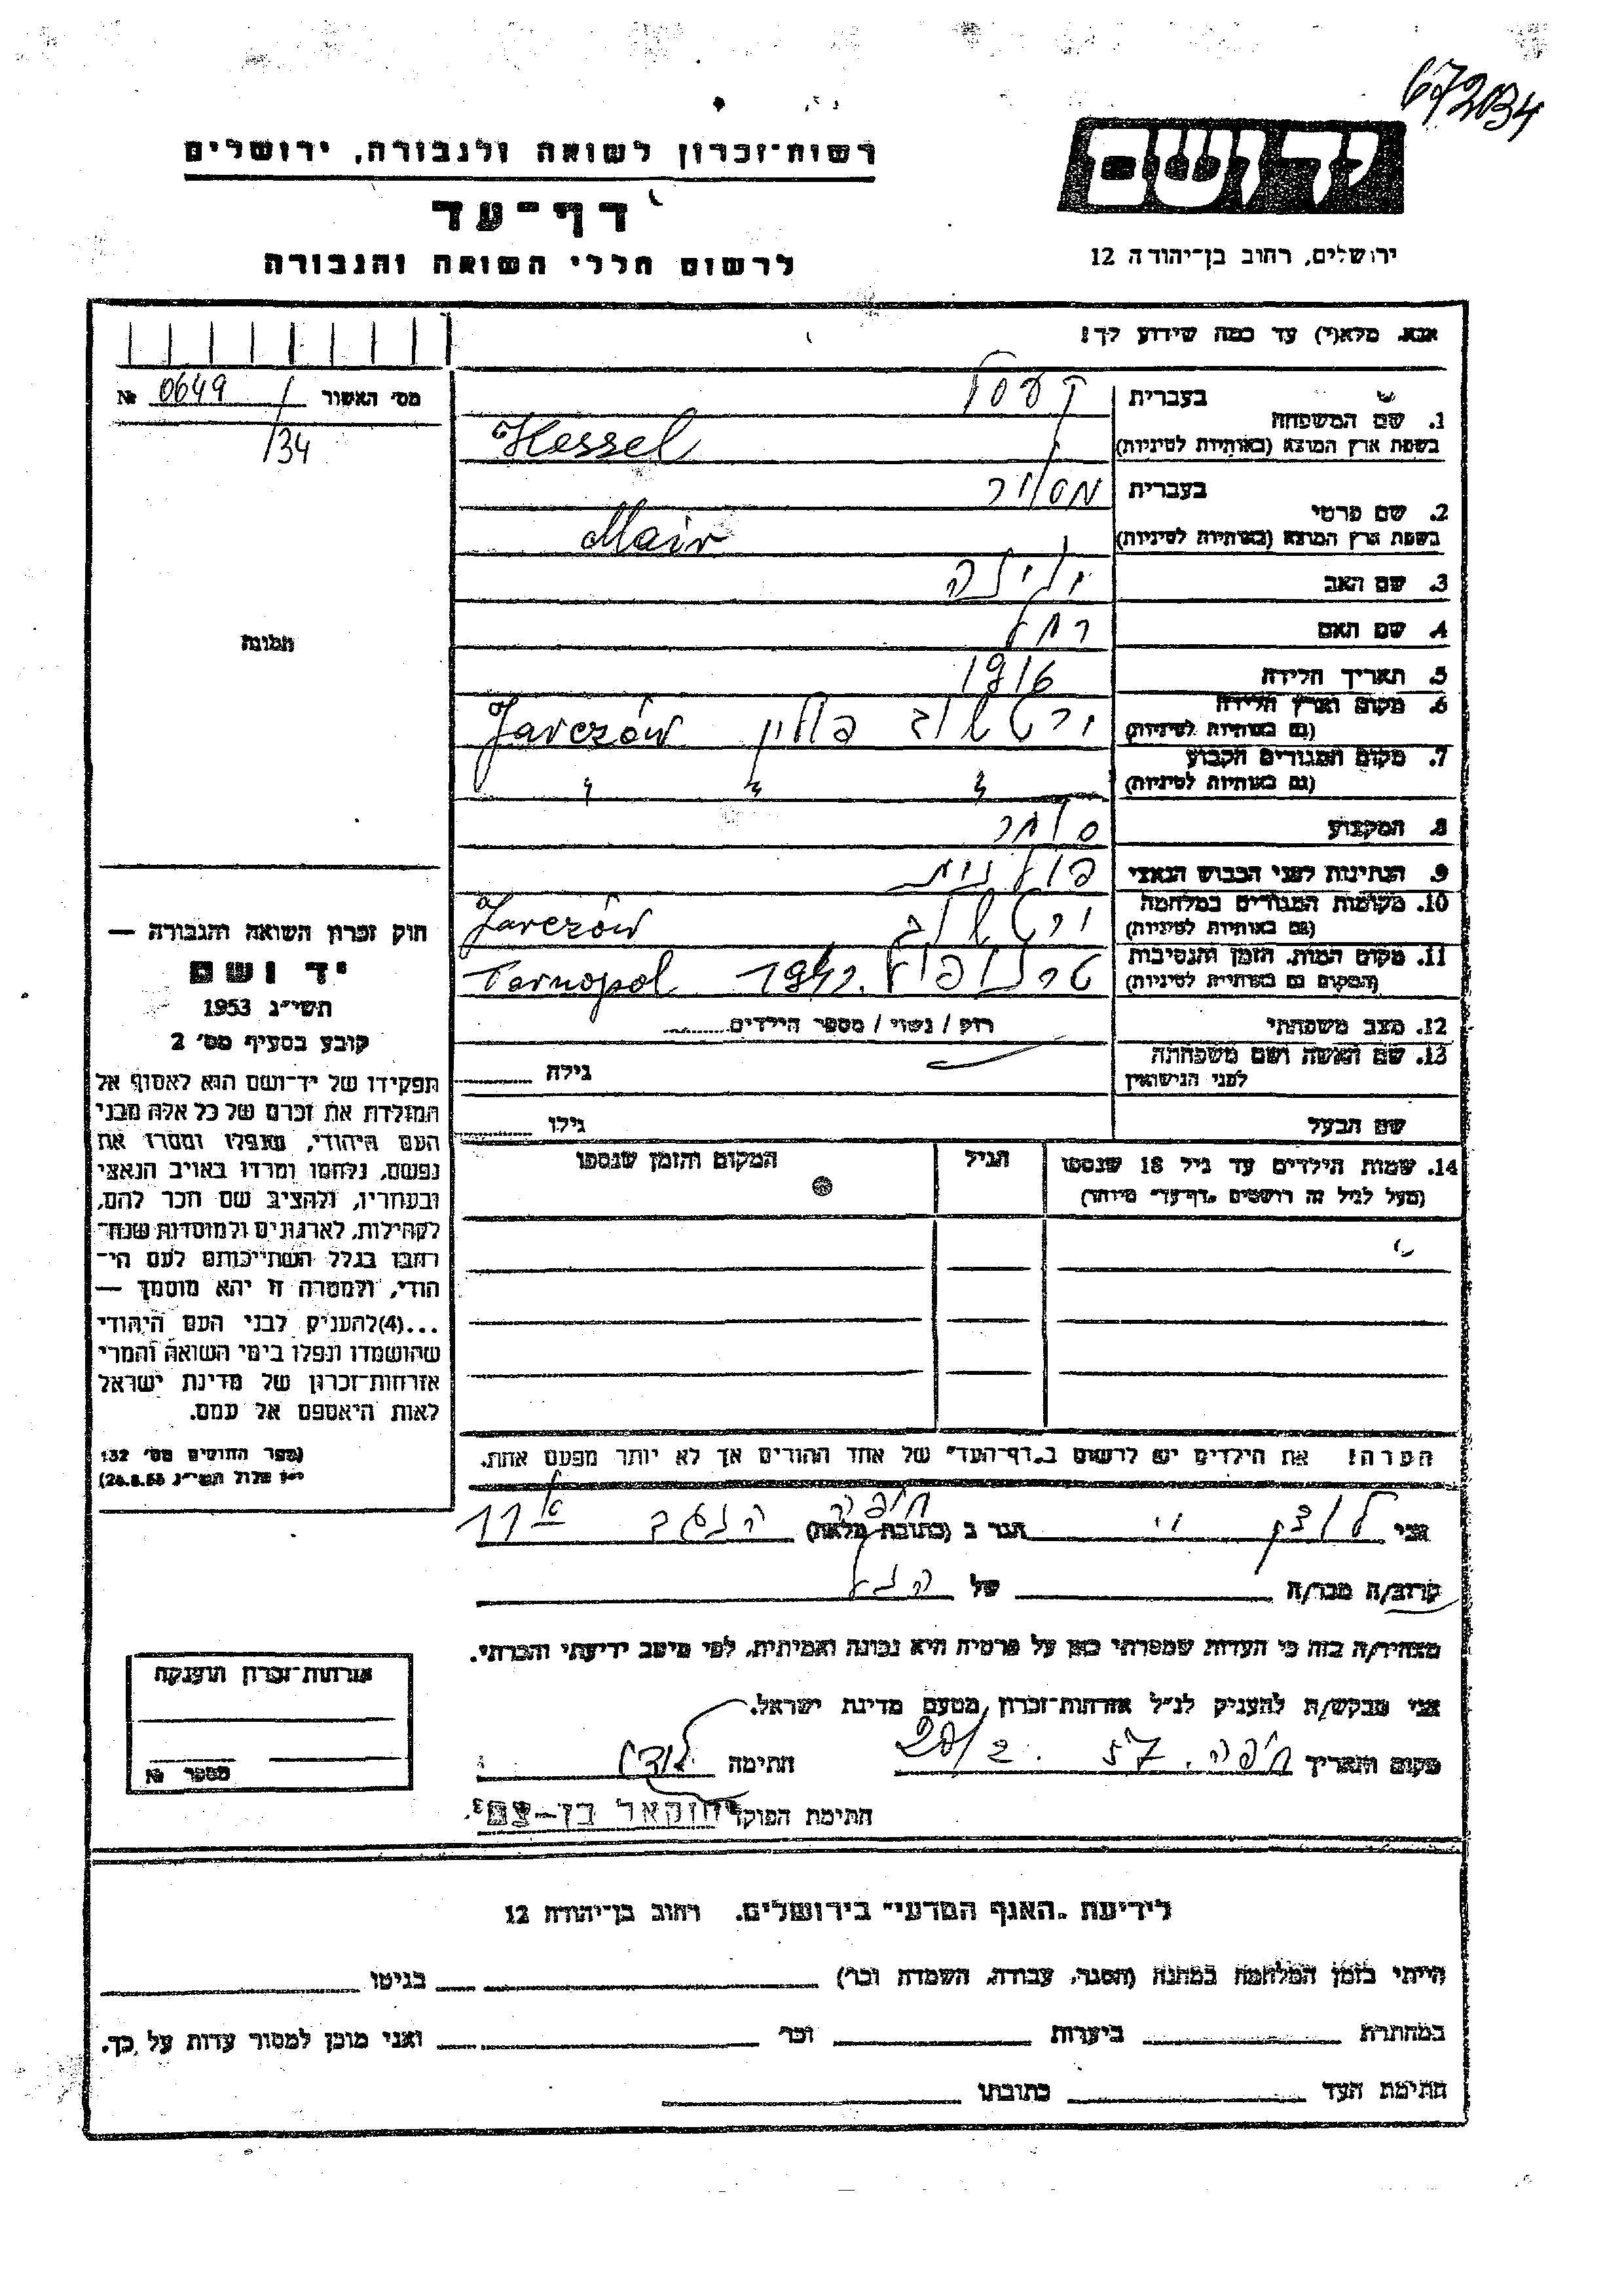 672034
רשות־זכרון לשואה ולגבורה, ירושלים
יד ושם
דף־עד
לרשום חללי השואה והגבורה
ירושלים, רחוב בן־יהודה 12
אנא, מלא(י) עד כמה שידוע לך!
מס׳ האשור 0649 / №
/34
תמונה
1. שם המשפחה
בעברית
בשפת ארץ המוצא (באותיות לטיניות) Hessel
2. שם פרטי
בעברית מאיר
בשפת ארץ המוצא (באותיות לטיניות) Mair
3. שם האב
4. שם האם רחל
5. תאריך הלידה 1916
6. מקום וארץ הלידה
(גם באותיות לטיניות) פולין Jarczów
7. מקום המגורים הקבוע
(גם באותיות לטיניות) " " "
8. המקצוע סוחר
9. הנתינות לפני הכבוש הנאצי פולנית
10. מקומות המגורים במלחמה
(גם באותיות לטיניות) Jarczów
11. מקום המות, הזמן והנסיבות
(המקום גם באותיות לטיניות) טרנופול Tarnopol
12. מצב משפחתי רוק / נשוי / מספר הילדים
13. שם האשה ושם משפחתה
לפני הנישואין גילה
שם הבעל גילו
14. שמות הילדים עד גיל 18 שנספו
(מעל לגיל זה רושמים „דף־עד" מיוחד)
הגיל
המקום והזמן שנספו
הערה! את הילדים יש לרשום ב„דף־העד" של אחד ההורים אך לא יותר מפעם אחת.
חוק זכרון השואה והגבורה —
יד ושם
תשי״ג 1953
קובע בסעיף מס׳ 2
תפקידו של יד־ושם הוא לאסוף אל
המולדת את זכרם של כל אלה מבני
העם היהודי, שנפלו ומסרו את
נפשם, נלחמו ומרדו באויב הנאצי
ובעוזריו, ולהציב שם וזכר להם,
לקהילות, לארגונים ולמוסדות שנח־
רבו בגלל השתייכותם לעם הי־
הודי, ולמטרה זו יהא מוסמך —
...(4)להעניק לבני העם היהודי
שהושמדו ונפלו בימי השואה והמרי
אזרחות־זכרון של מדינת ישראל
לאות היאספם אל עמם.
(ספר החוקים מס׳ 132
י״ז אלול תשי״ג 28.8.53)
אני הגר ב (כתובת מלאה) חיפה 11
קרוב/ה מכר/ה של הנ״ל
מצהיר/ה בזה כי העדות שמסרתי כאן על פרטיה היא נכונה ואמיתית, לפי מיטב ידיעתי והכרתי.
אני מבקש/ת להעניק לנ״ל אזרחות־זכרון מטעם מדינת ישראל.
מקום ותאריך חיפה. 57 חתימה
חתימת הפוקד יחזקאל בן-
אזרחות־זכרון הוענקה
מספר №
לידיעת „האגף המדעי" בירושלים, רחוב בן־יהודה 12
הייתי בזמן המלחמה במחנה (הסגר, עבודה, השמדה וכו׳) בגיטו
במחתרת ביערות וכו׳ ואני מוכן למסור עדות על כך.
חתימת העד כתובתו